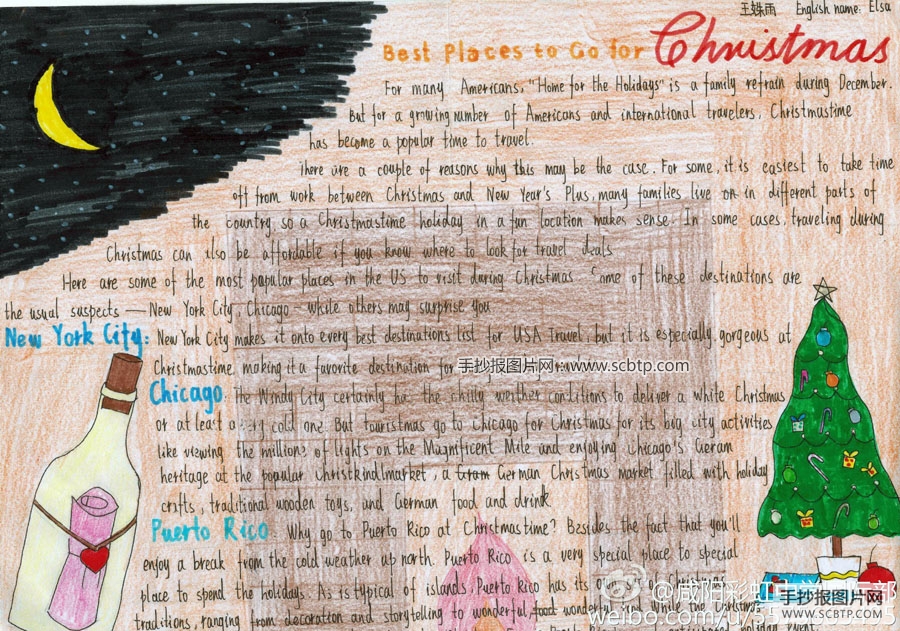 王姝雨 English name: Elsa
Best Places to Go for Christmas
For many Americans, "Home for the Holidays" is a family refrain during December.
But for a growing number of Americans and international travelers, Christmastime
has become a popular time to travel.
There are a couple of reasons why this may be the case. For some, it is easiest to take time
off from work between Christmas and New Year's Plus, many families live on in different parts of
the country, so a Christmastime holiday in a fun location makes sense. In some cases, traveling during
Christmas can also be affordable if you know where to look for travel deals
Here are some of the most popular places in the US to visit during Christmas Some of these destinations are
the usual suspects — New York City, Chicago - while others may surprise you
New York City: New York City makes it onto every best destinations list for USA Travel, but it is especially gorgeous at
Christmastime, making it a favorite destination for
手抄报图片网:www.scbtp.com
Chicago The Windy City certainly has the chilly weather conditions to deliver a white Christmas
or at least a cold one. But tourists go to Chicago for Christmas for its big city activities
like viewing the millions of lights on the Magnificent Mile and enjoying Chicago's German
heritage at the popular Christkindlmarket, a German Christmas market filled with holiday
crafts, traditional wooden toys, and German food and drink
Puerto Rico Why go to Puerto Rico at Christmastime? Besides the fact that you'll
enjoy a break from the cold weather up north. Puerto Rico is a very special place to special
place to spend the holidays. As is typical of islands, Puerto Rico has its own Christmas
traditions, ranging from decoration and storytelling to wonderful food wonderful, while the Christmas
holiday event
@咸阳彩虹
weibo.com/u/
手抄报图片网
WWW.SCBTP.COM